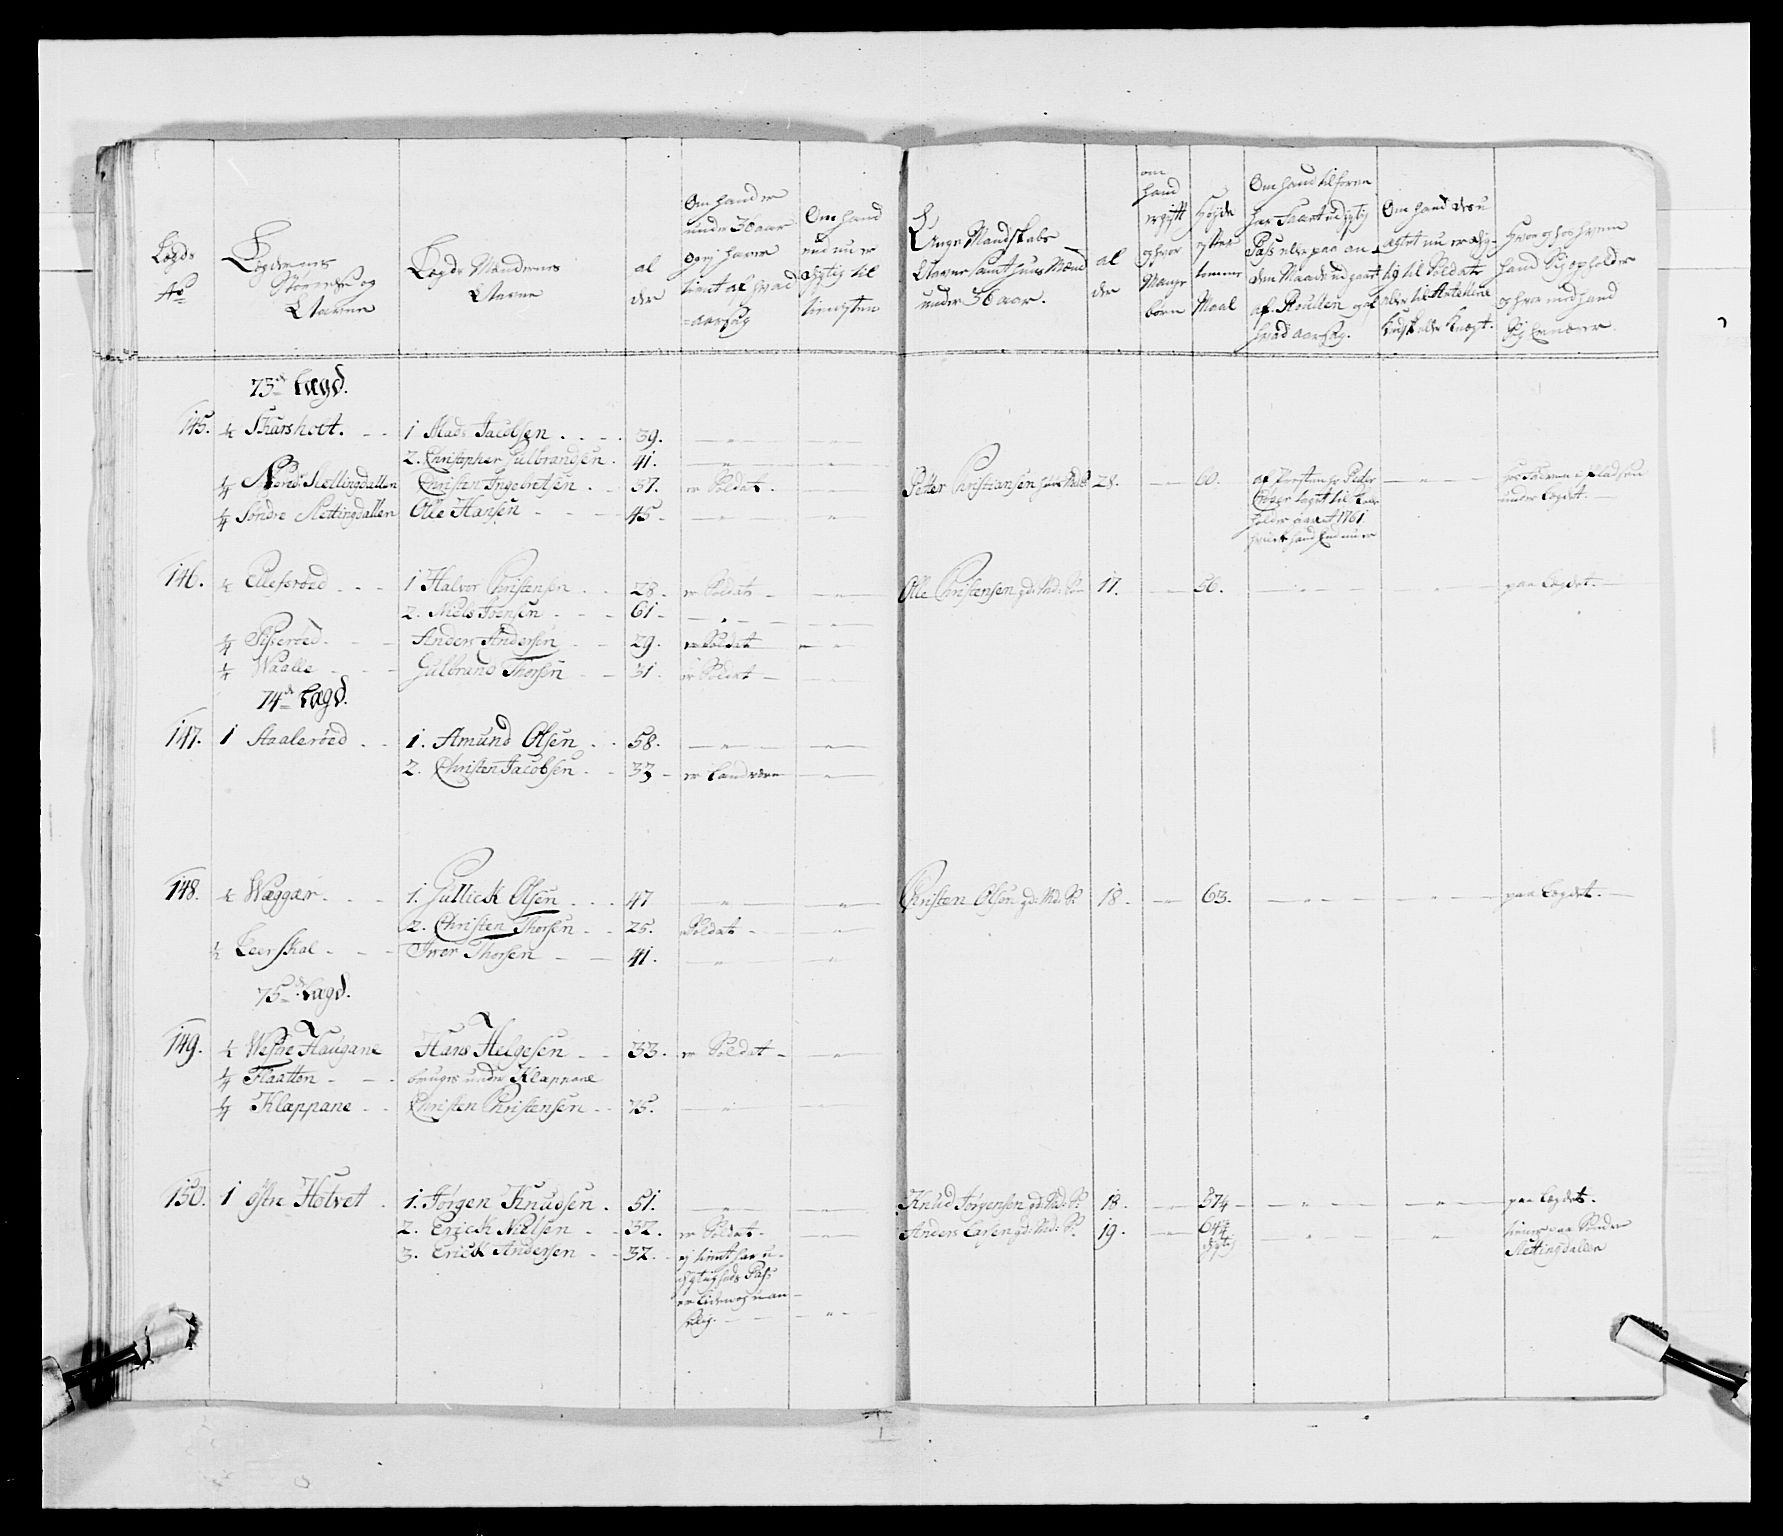 Lægds
No
Lægdernes
Störrelse og
Navne
Lægds Mændernes
Navne
al
der
Om hand er
under 36 aar
og ej haver
tient af hvad
aarsag
Om hand
end nu er
dygtig til
tienesten
Unge Mandskabs
Navne samt huus Mænd
under 36 aar.
al
der
om
hand
er gift
og hvor
Mange
börn
Höyde
efter
tomme
Maal
Om hand tilforn
har faaet udygtig
Pass eller paa an
den Maade udgaaet
af Roullen og af
hvad aarsag.
Om hand
agtet nu er dyg-
tig til Soldat
eller til Artollerie
Kudsk eller Knegt.
Hvor og hos hvem
hand sig opholder
og hvor ved hand
sig
73de Lægd.
145. ½ Skarsholt. 1 Mads Jacobsen 39.
2. Christopher Gulbrandsen. 41.
¼ Nordre Slettingdallen Christen Ingebretsen 37. er Soldat. Petter Christiansen huus Mand 28. 60.
af Peder
taget til
holder aaret 1761
hvilket hand End nu er
under Lægdet.
¼ Söndre Slettingdallen Olle Hansen 45.
146. ½ Elleseröed 1 Halvor Christensen 28. er Soldat Olle Christensen gd: Md: S. 17. 56. paa Lægdet.
2. Niels Joensen 61.
¼ Sisseröed. Anders Andersen 29. er Soldat
¼ Waalle Gulbrand Thorsen 31. er Soldat
74de Lægd.
147. 1 Aaleröed 1. Amund Olsen 58.
2. Christen Jacobsen 33 er Landværn
148. ½ Wæggær. 1. Gullick Olsen 47 Christen Olsen gd: Md: S. 18. 63. paa Lægdet.
2. Christen Thorsen 25. Soldat
½ Leerskal Iver Thorsen 41.
75de Lægd.
149. ½ Westre Haugane Hans Helgesen 33. er Soldat
¼ Flaatten bruges under Klæppane
¼ Klæppane Christen Christensen 75.
150. 1 östre Holvet 1. Jörgen Knudsen 51. Knud Jörgensen gd: Md: S. 18. 57¼ paa Lægdet.
2. Erick Nielsen 32. er Soldat Anders Larsen gd: Md: S. 19. 64¼ tiener paa Söndre
dygtig Slettingdallen
3. Erick Andersen 32. ej tient har u-
dygtigheds Pass
er liden og uan-
selig.